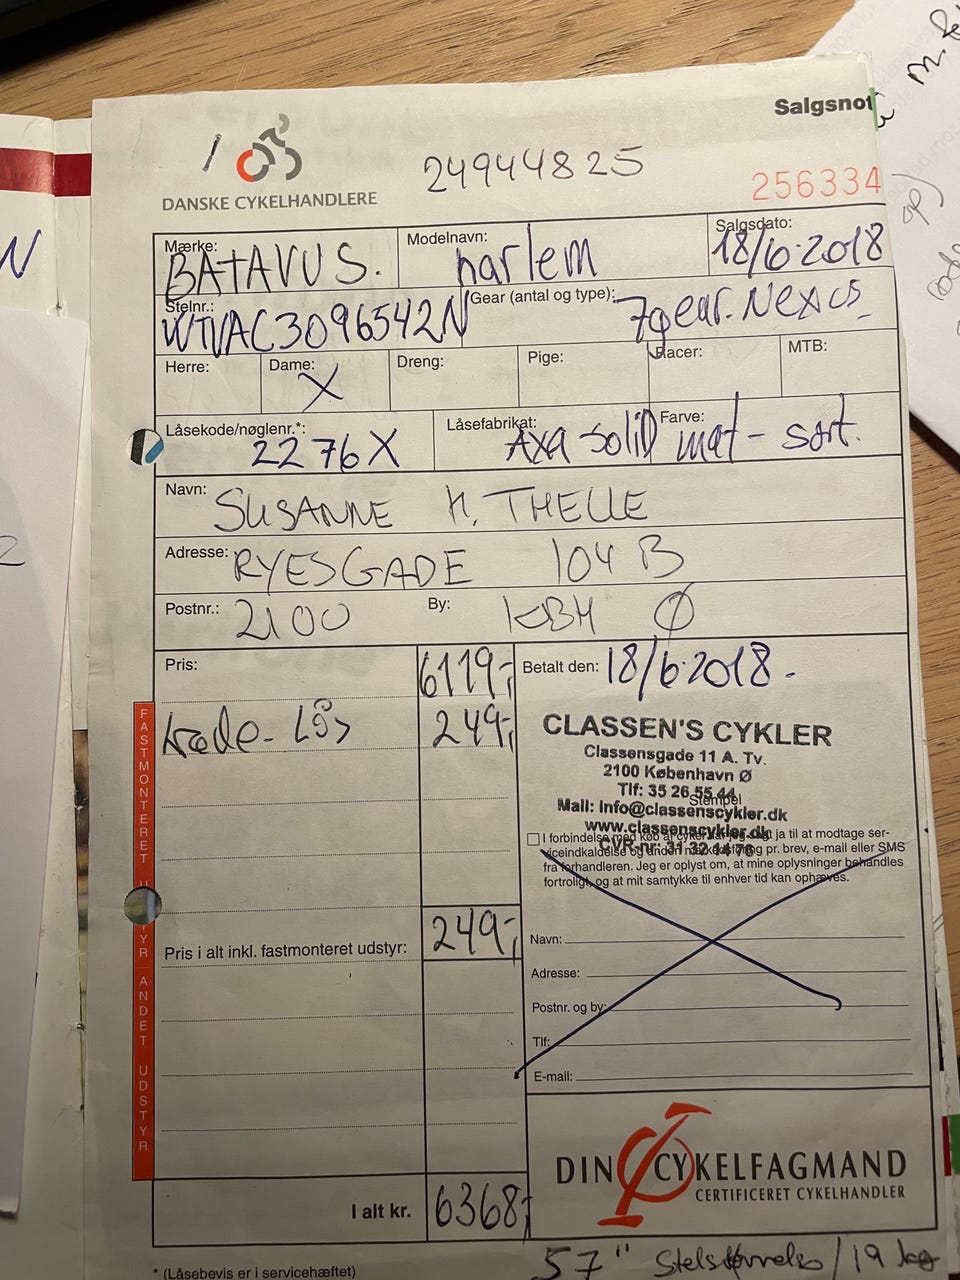 Salgsnot
24944825
256334
DANSKE CYKELHANDLERE
Mærke: BATAVUS. Modelnavn: harlem Salgsdato: 18/6-2018
Stelnr.: WTVAC3096542N Gear (antal og type): 7gear. Nexus
Herre: Dame: X Dreng: Pige: Racer: MTB:
Låsekode/nøglenr.*: 2276X Låsefabrikat: AXA-Solid Farve: mat-sort.
Navn: SUSANNE H. THELLE
Adresse: RYESGADE 104 B
Postnr.: 2100 By: KBH Ø
Pris: 6119,- Betalt den: 18/6-2018.
kæde-Lås 249,-
CLASSEN'S CYKLER
Classensgade 11 A. Tv.
2100 København Ø
Tlf: 35 26 55 44
Stempel
Mail: Info@classenscykler.dk
www.classenscykler.dk
CVR-nr: 31 32
I forbindelse med køb af cykel ja til at modtage ser-
viceindkaldelse og anden pr. brev, e-mail eller SMS
fra forhandleren. Jeg er oplyst om, at mine oplysninger behandles
fortroligt, og at mit samtykke til enhver tid kan ophæves.
FASTMONTERET UDSTYR
Pris i alt inkl. fastmonteret udstyr: 249,-
Navn:
Adresse:
Postnr. og by:
Tlf:
E-mail:
ANDET UDSTYR
DIN CYKELFAGMAND
CERTIFICERET CYKELHANDLER
I alt kr. 6368,-
* (Låsebevis er i servicehæftet)
57" Stelstørrelse / 19 kg